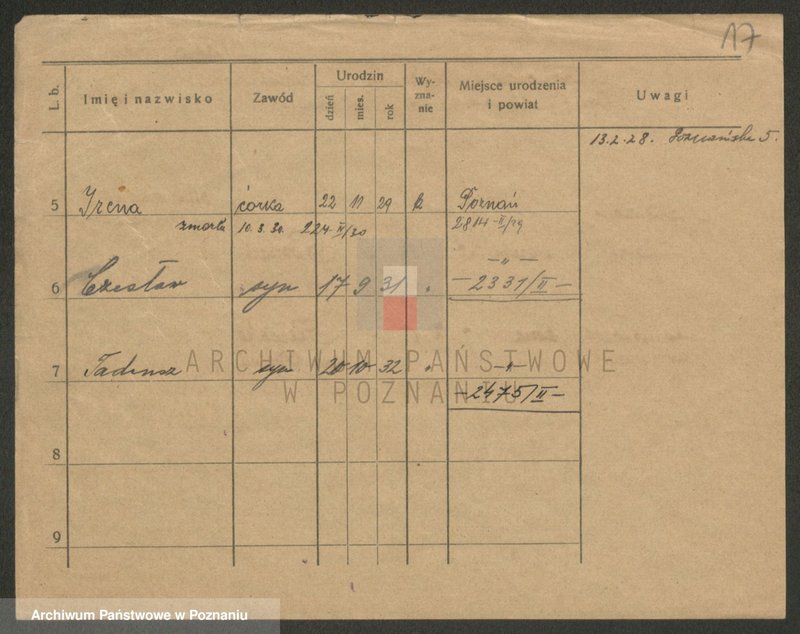 17
L. b.
Imię i nazwisko
Zawód
Urodzin
dzień
mies.
rok
Wy-
zna-
nie
Miejsce urodzenia
i powiat
Uwagi
13.2.28. Poznańska 5.
5 Irena córka 22 11 29 k Poznań
zmarła 10.3.30. 224-II/30 2814-II/29
6 Czesław syn 17 9 31 " — " —
— 2331/II —
7 Tadeusz syn 20 10 32 " — " —
— 2475/II —
8
9
ARCHIWUM PAŃSTWOWE
W POZNANIU
Archiwum Państwowe w Poznaniu